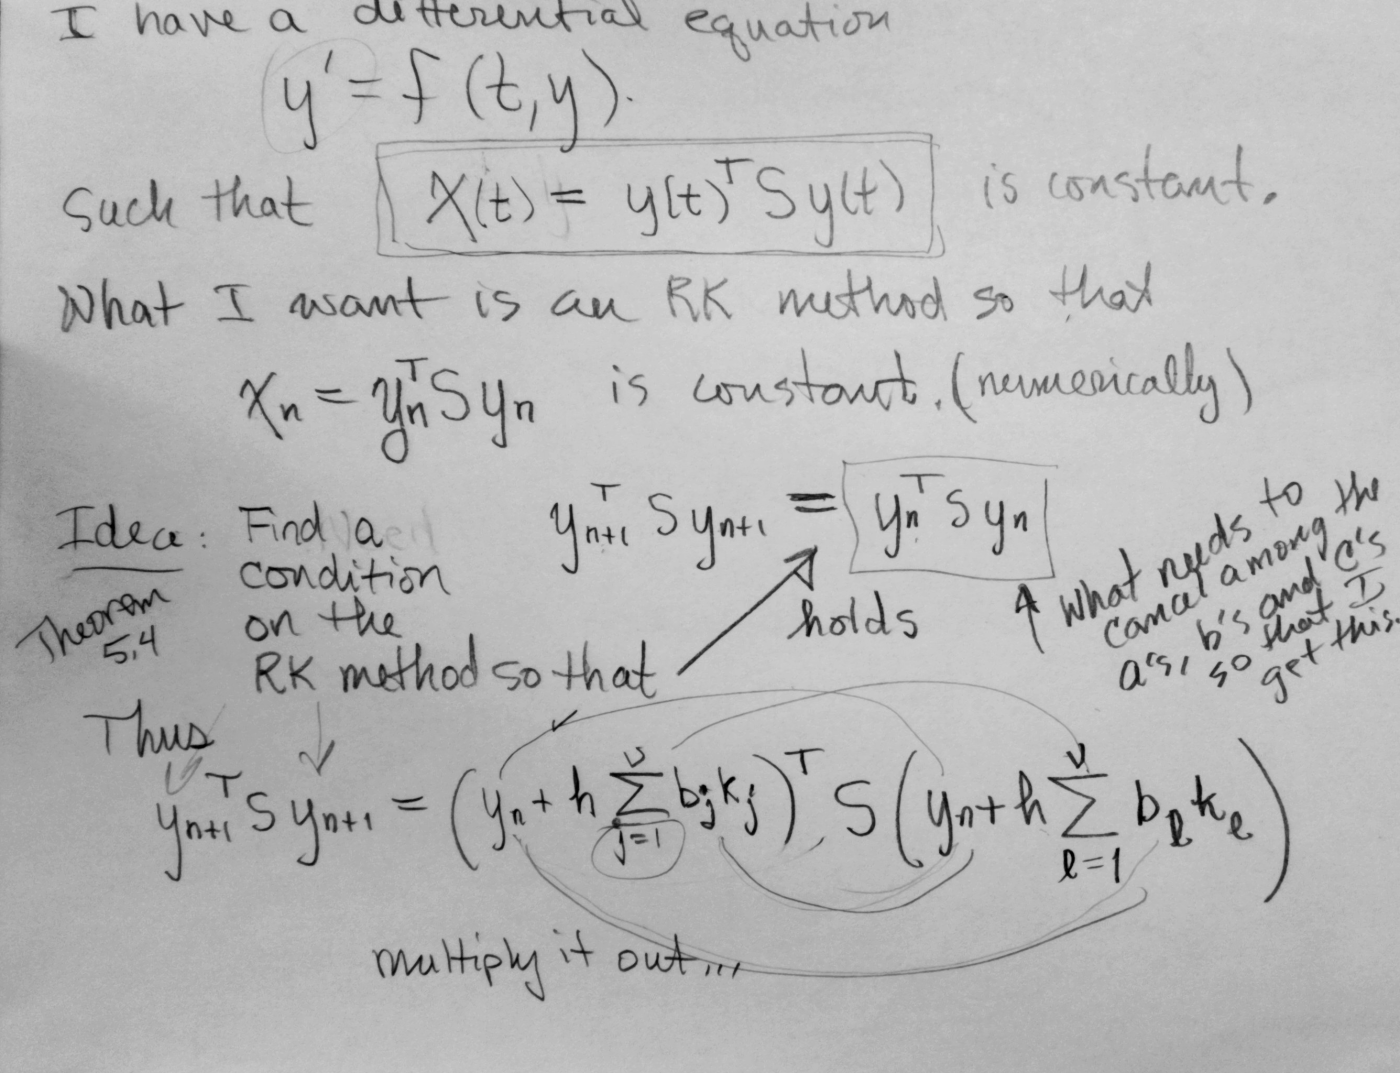 I have a differential equation
y' = f (t, y).
Such that X(t) = y(t)ᵀ S y(t) is constant.
What I want is an RK method so that
Xₙ = yₙᵀ S yₙ is constant. (numerically)
Idea: Find a condition on the RK method so that
Theorem 5.4
yₙ₊₁ᵀ S yₙ₊₁ = yₙᵀ S yₙ
holds
What needs to
cancel among the
a's, b's and c's
so that I
get this.
Thus
yₙ₊₁ᵀ S yₙ₊₁ = (yₙ + h ∑_{j=1}^{ν} bⱼkⱼ)ᵀ S (yₙ + h ∑_{ℓ=1}^{ν} b_ℓ k_ℓ)
multiply it out...